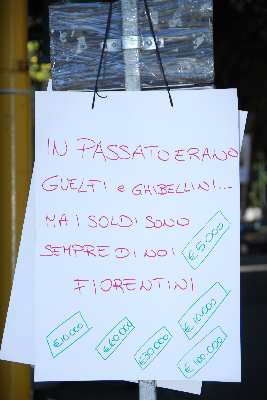 IN PASSATO ERANO
GUELFI e GHIBELLINI...
MA I SOLDI SONO
SEMPRE DI NOI
€5.000
FIORENTINI
€10.000
€10.000
€60.000
€30.000
€100.000